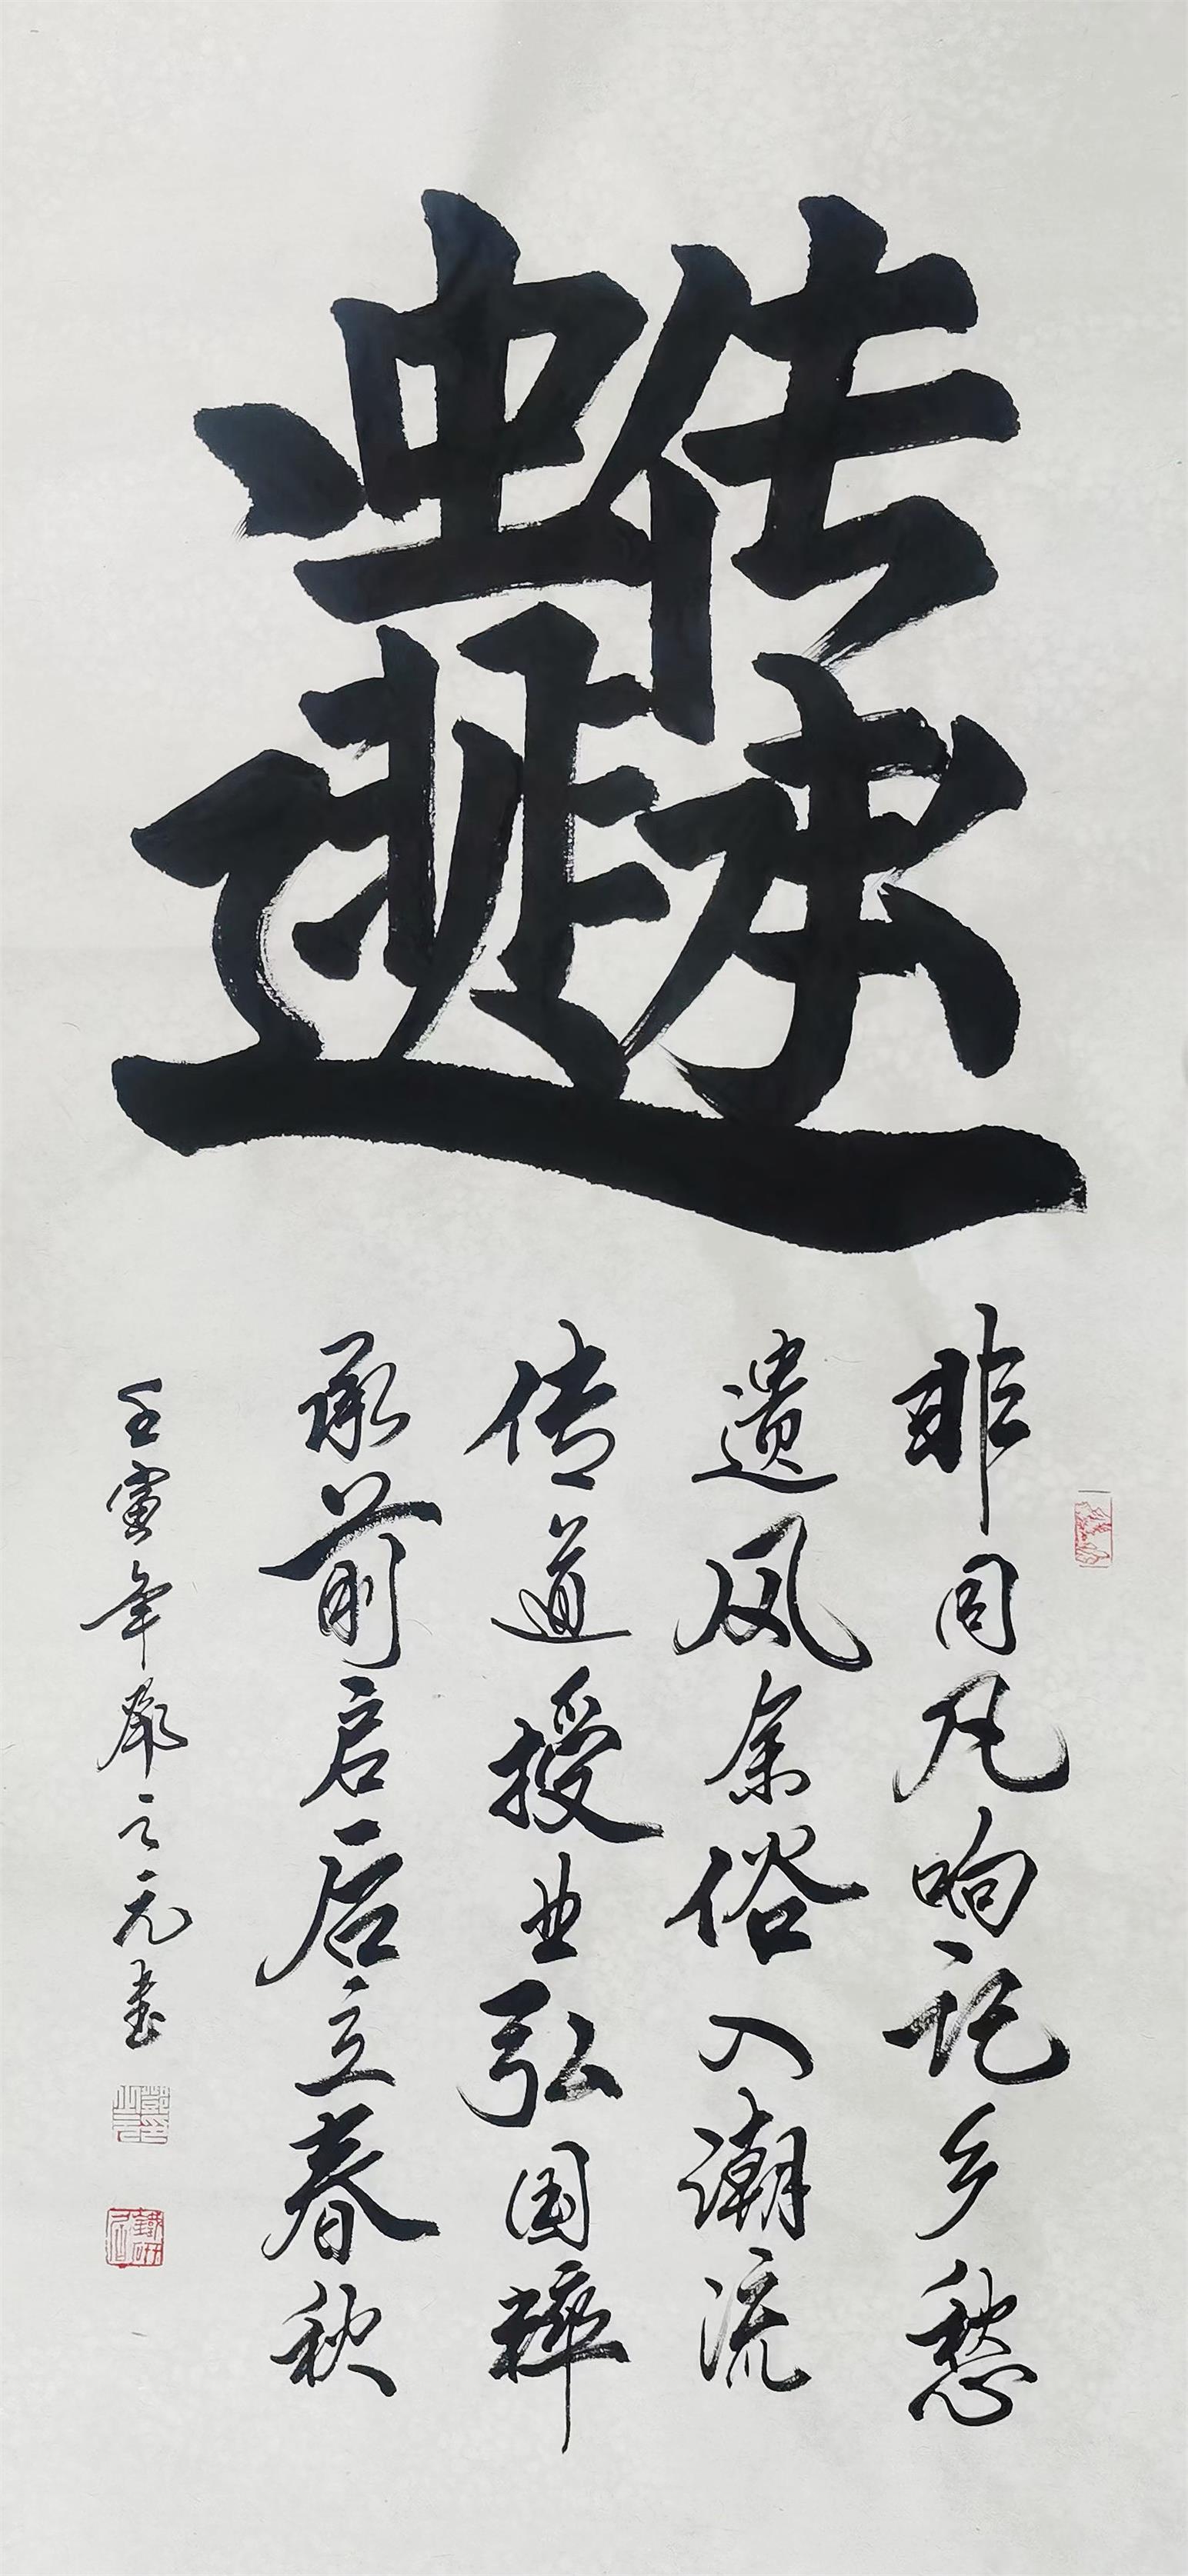 非同凡响记乡愁
遗风余俗入潮流
传道授业弘国粹
承前启后立春秋
壬寅年邓之元书